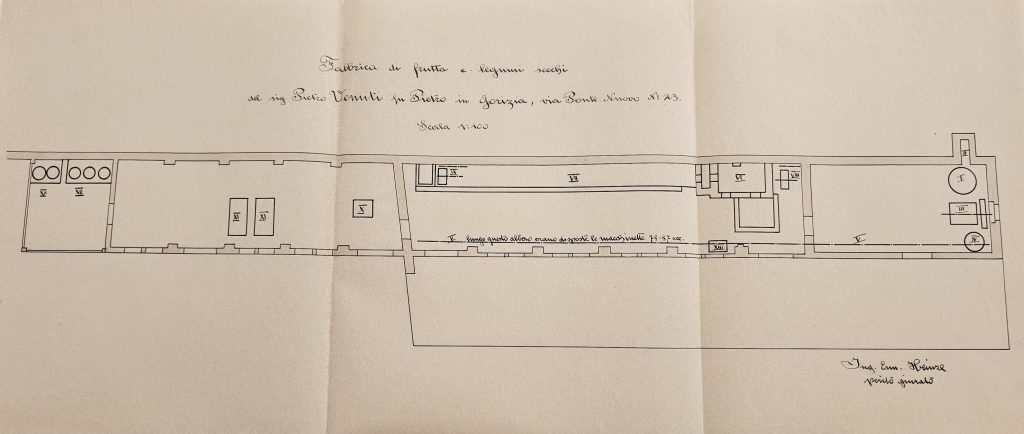 Fabbrica di frutta e legumi secchi
del sig Pietro Venuti fu Pietro in Gorizia, via Ponte Nuovo No 23.
Scala 1:100
II
I
IX
VII
VI
VIII
III
XI
XI
X
V lungo questo albero erano disposte le macchinette 78-87 ecc.
V
IV
Ing. Em. Heinze
perito giurato